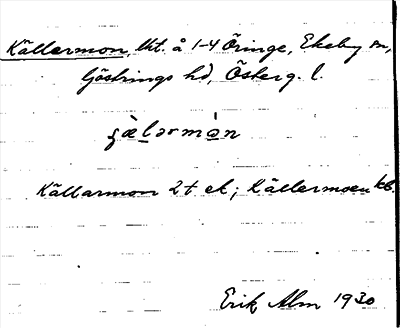 Källarmon, lht. å 1-4 Öringe, Ekeby sn,
Göstrings hd, Österg. l.
Källarmon 2t ek; Källermoen kb.
Erik Alm 1930